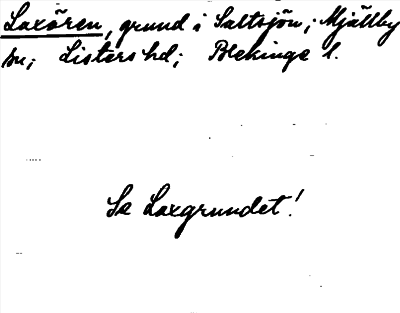 Laxören, grund i Saltsjön; Mjällby
sn; Listers hd; Blekinge l.
Se Laxgrundet!